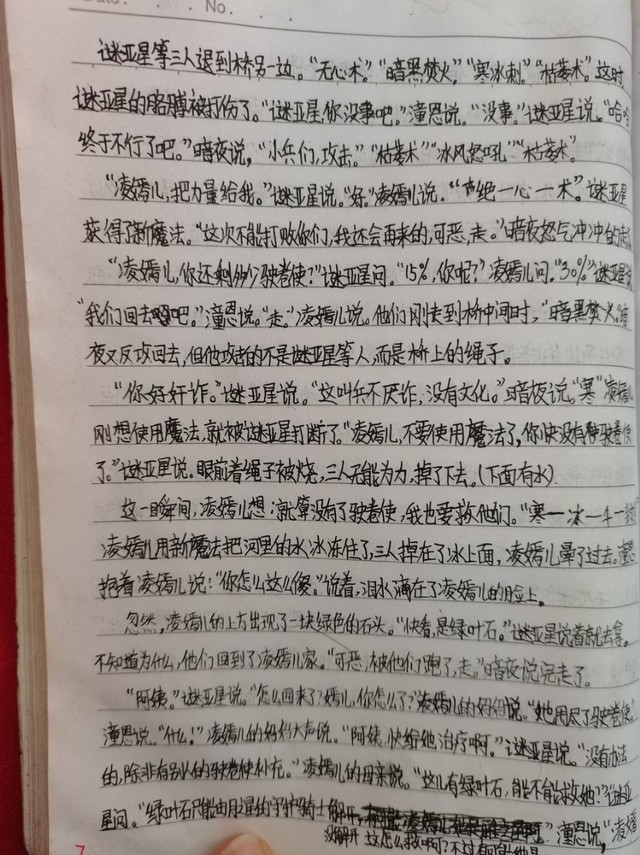 Date.  .  .  No.  .  .  .
谜亚星等三人退到桥另一边。“无心术。”“暗黑焚火。”“寒冰刺。”“枯萎术。”这时
谜亚星的胳膊被打伤了。“谜亚星,你没事吧。”潼恩说。“没事。”谜亚星说。“哈哈
终于不行了吧。”暗夜说,“小兵们,攻击。”“枯萎术”“冰风怒吼”“枯萎术”。
“凌嫣儿,把力量给我。”谜亚星说。“好。”凌嫣儿说.“绝一心一术”。谜亚星
获得了新魔法。“这次不能打败你们,我还会再来的,可恶,走。”暗夜怒气冲冲的
“凌嫣儿,你还剩多少驶卷使?”谜亚星问。“15%,你呢?”凌嫣儿问。“30%”谜亚星
“我们回去吧。”潼恩说。“走。”凌嫣儿说。他们刚走到桥中间时,“暗黑焚火。”暗
夜又反攻回去,但他攻击的不是谜亚星等人,而是桥上的绳子。
“你好奸诈。”谜亚星说。“这叫兵不厌诈,没有文化。”暗夜说。“寒”凌嫣儿
刚想使用魔法,就被谜亚星打断了。“凌嫣儿,不要使用魔法了,你快没有驶卷使
了。”谜亚星说.眼前着绳子被烧,三人无能为力,掉了下去。(下面有水)
这一瞬间,凌嫣儿想:就算没有了驶卷使,我也要救他们。“寒一冰一千一
凌嫣儿用新魔法把河里的水冰冻住了,三人掉在了冰上面,凌嫣儿晕了过去。潼恩
抱着凌嫣儿说:“你怎么这么傻。”说着,泪水滴在了凌嫣儿的脸上。
忽然,凌嫣儿的上方出现了一块绿色的石头。“快看,是绿叶石。”谜亚星说着就去拿。
不知道为什么,他们回到了凌嫣儿家。“可恶,被他们跑了,走。”暗夜说完走了。
“阿姨。”谜亚星说。“怎么回来了?嫣儿,你怎么了?”凌嫣儿的妈妈说。“她用尽了驶卷使。”
潼恩说。“什么!”凌嫣儿的妈妈大声说。“阿姨,快给她治疗啊。”谜亚星说。“没有办法
的,除非有别的驶卷使补充。”凌嫣儿的母亲说。“这儿有绿叶石,能不能救她?”谜亚
星问。“绿叶石只能由月湿的守护骑士解开,”潼恩说,“凌嫣
没解开 这怎么救啊?不过
7